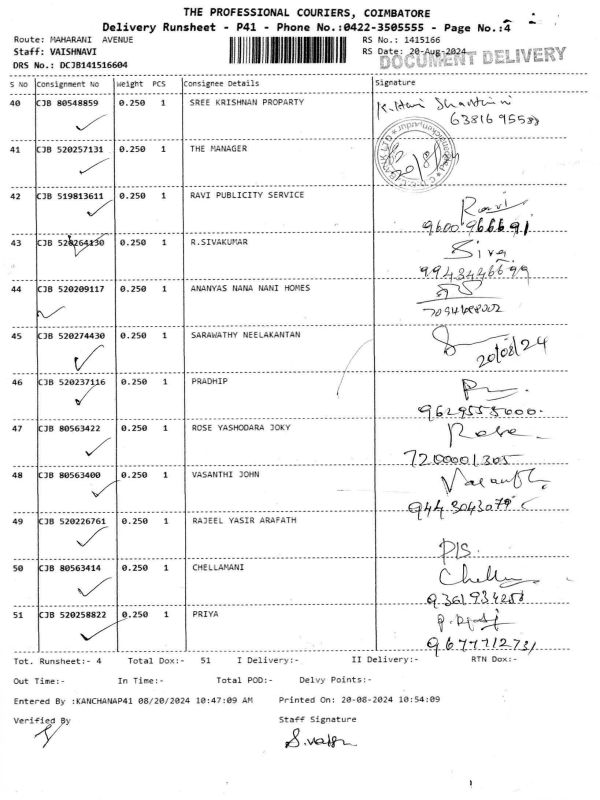 THE PROFESSIONAL COURIERS, COIMBATORE
Delivery Runsheet - P41 - Phone No.:0422-3505555 - Page No.:4
Route: MAHARANI AVENUE RS No.: 1415166
Staff: VAISHNAVI RS Date: 20-Aug-2024
DRS No.: DCJB141516604 DOCUMENT DELIVERY
S No Consignment No Weight PCS Consignee Details Signature
40 CJB 80548859 0.250 1 SREE KRISHNAN PROPARTY K. Hari Shanthini
6381695588
41 CJB 520257131 0.250 1 THE MANAGER
20/8/24
42 CJB 519813611 0.250 1 RAVI PUBLICITY SERVICE Ravi
9600966691
43 CJB 520264130 0.250 1 R.SIVAKUMAR Siva
9943446699
44 CJB 520209117 0.250 1 ANANYAS NANA NANI HOMES
45 CJB 520274430 0.250 1 SARAWATHY NEELAKANTAN
20/08/24
46 CJB 520237116 0.250 1 PRADHIP
9629555000.
47 CJB 80563422 0.250 1 ROSE YASHODARA JOKY Rose
7200001305
48 CJB 80563400 0.250 1 VASANTHI JOHN Vasanth
49 CJB 520226761 0.250 1 RAJEEL YASIR ARAFATH
P/S.
50 CJB 80563414 0.250 1 CHELLAMANI Chellm
9361934258
51 CJB 520258822 0.250 1 PRIYA
9677712731
Tot. Runsheet:- 4 Total Dox:- 51 I Delivery:- II Delivery:- RTN Dox:-
Out Time:- In Time:- Total POD:- Delvy Points:-
Entered By :KANCHANAP41 08/20/2024 10:47:09 AM Printed On: 20-08-2024 10:54:09
Verified By Staff Signature